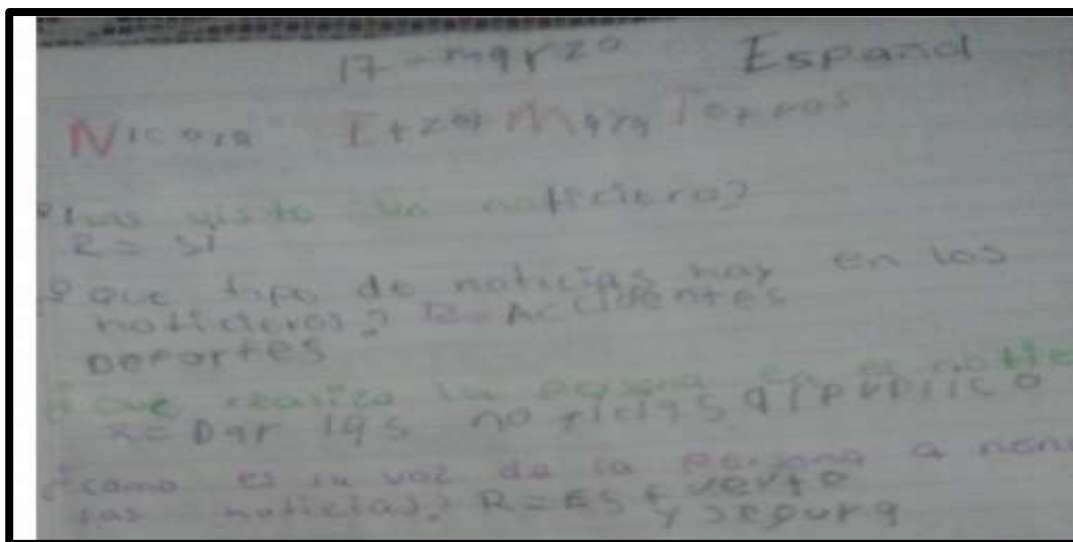 17 - marzo Español
Itzel
¿has visto un noticiero?
R= si
¿que tipo de noticias hay en los
noticieros? R= Accidentes
Deportes
¿que realiza la persona en el notic
R= Dar las noticias al publico
¿como es la voz de la persona a
las noticias? R= Es fuerte
y segura